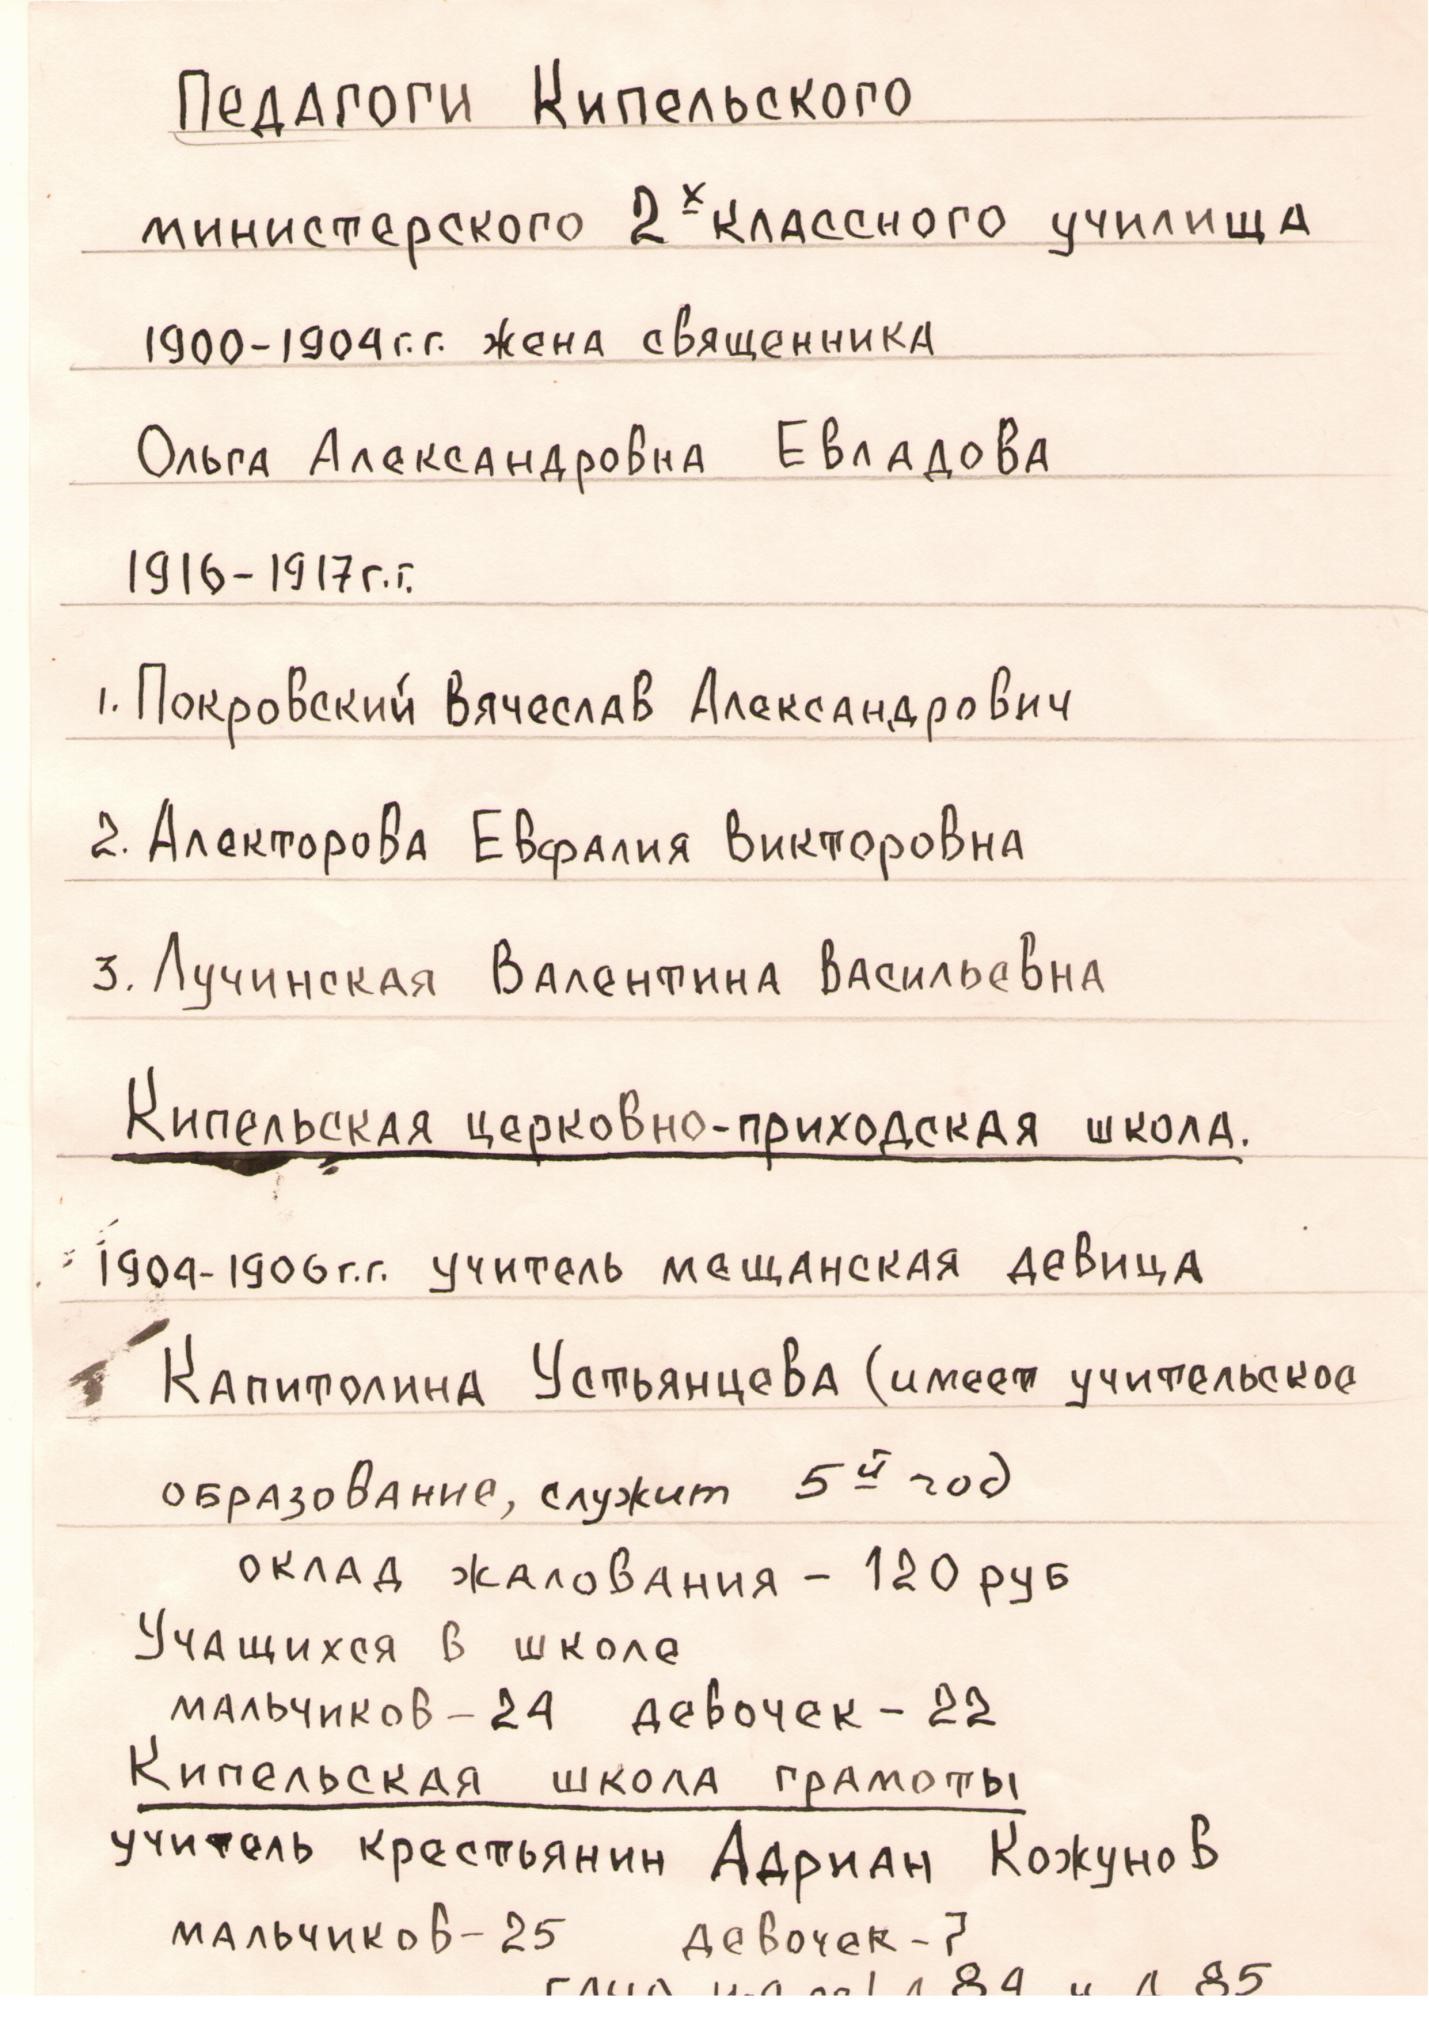 Педагоги Кипельского
министерского 2х классного училища
1900-1904г.г. жена священника
Ольга Александровна Евладова
1916-1917г.г.
1. Покровский Вячеслав Александрович
2. Алекторова Евфалия Викторовна
3. Лучинская Валентина Васильевна
Кипельская церковно-приходская школа.
1904-1906г.г. учитель мещанская девица
Капитолина Устьянцева (имеет учительское
образование, служит 5й год
оклад жалования - 120 руб
Учащихся в школе
мальчиков - 24 девочек - 22
Кипельская школа грамоты
учитель крестьянин Адриан Кожунов
мальчиков - 25 девочек - 7
84 и л 85